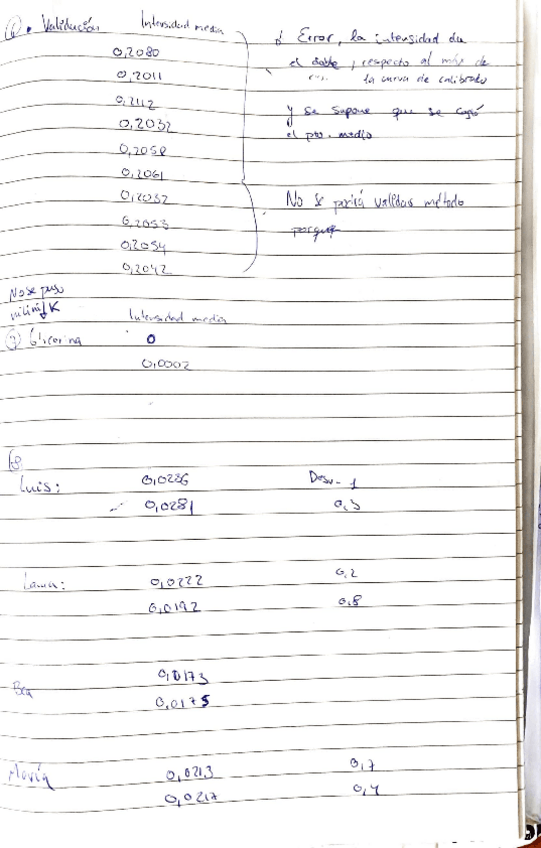 Validación Intensidad media
0,2080
0,2011
0,2112
0,2032
0,2058
0,2061
0,2032
0,2053
0,2054
0,2042
Error, la intensidad da
el doble, respecto al máx de
la curva de calibrado
y se supone que se cogió
el pto. medio
No se podrá validar método
porque
No se puso
Intensidad media
Glicerina 0
0,0002
Luis: 0,0286 Desv. 1
0,0281 0,5
Laura: 0,0222 0,2
0,0192 0,8
Bea 0,0173
0,0175
María 0,0213 0,7
0,0217 0,4